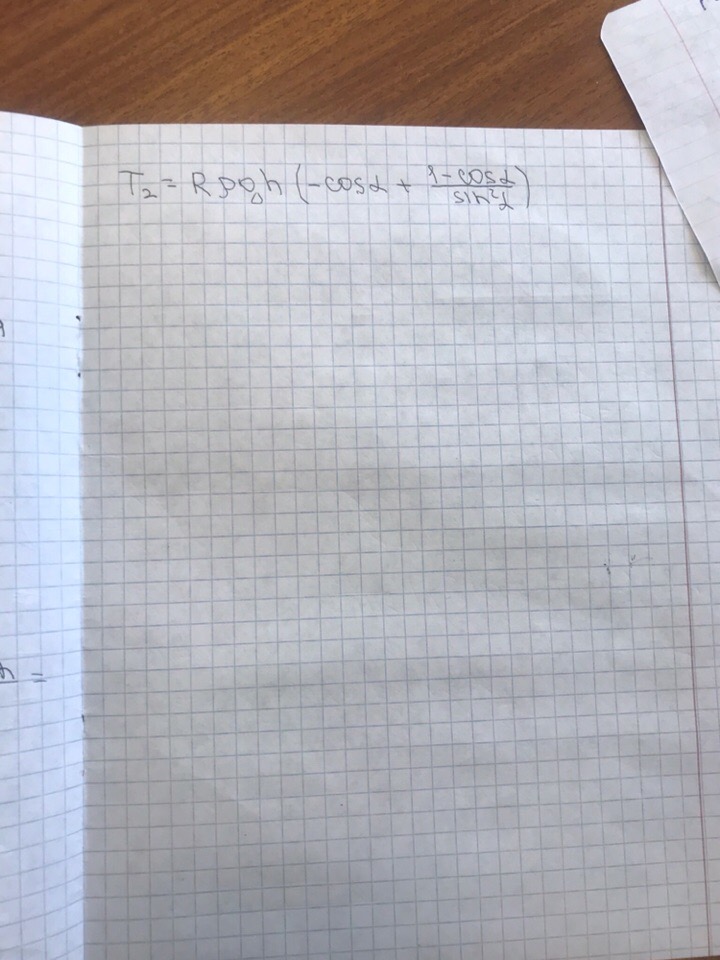 T₂ = Rρgh(-cosα + (1-cosα)/(sin²α))
=